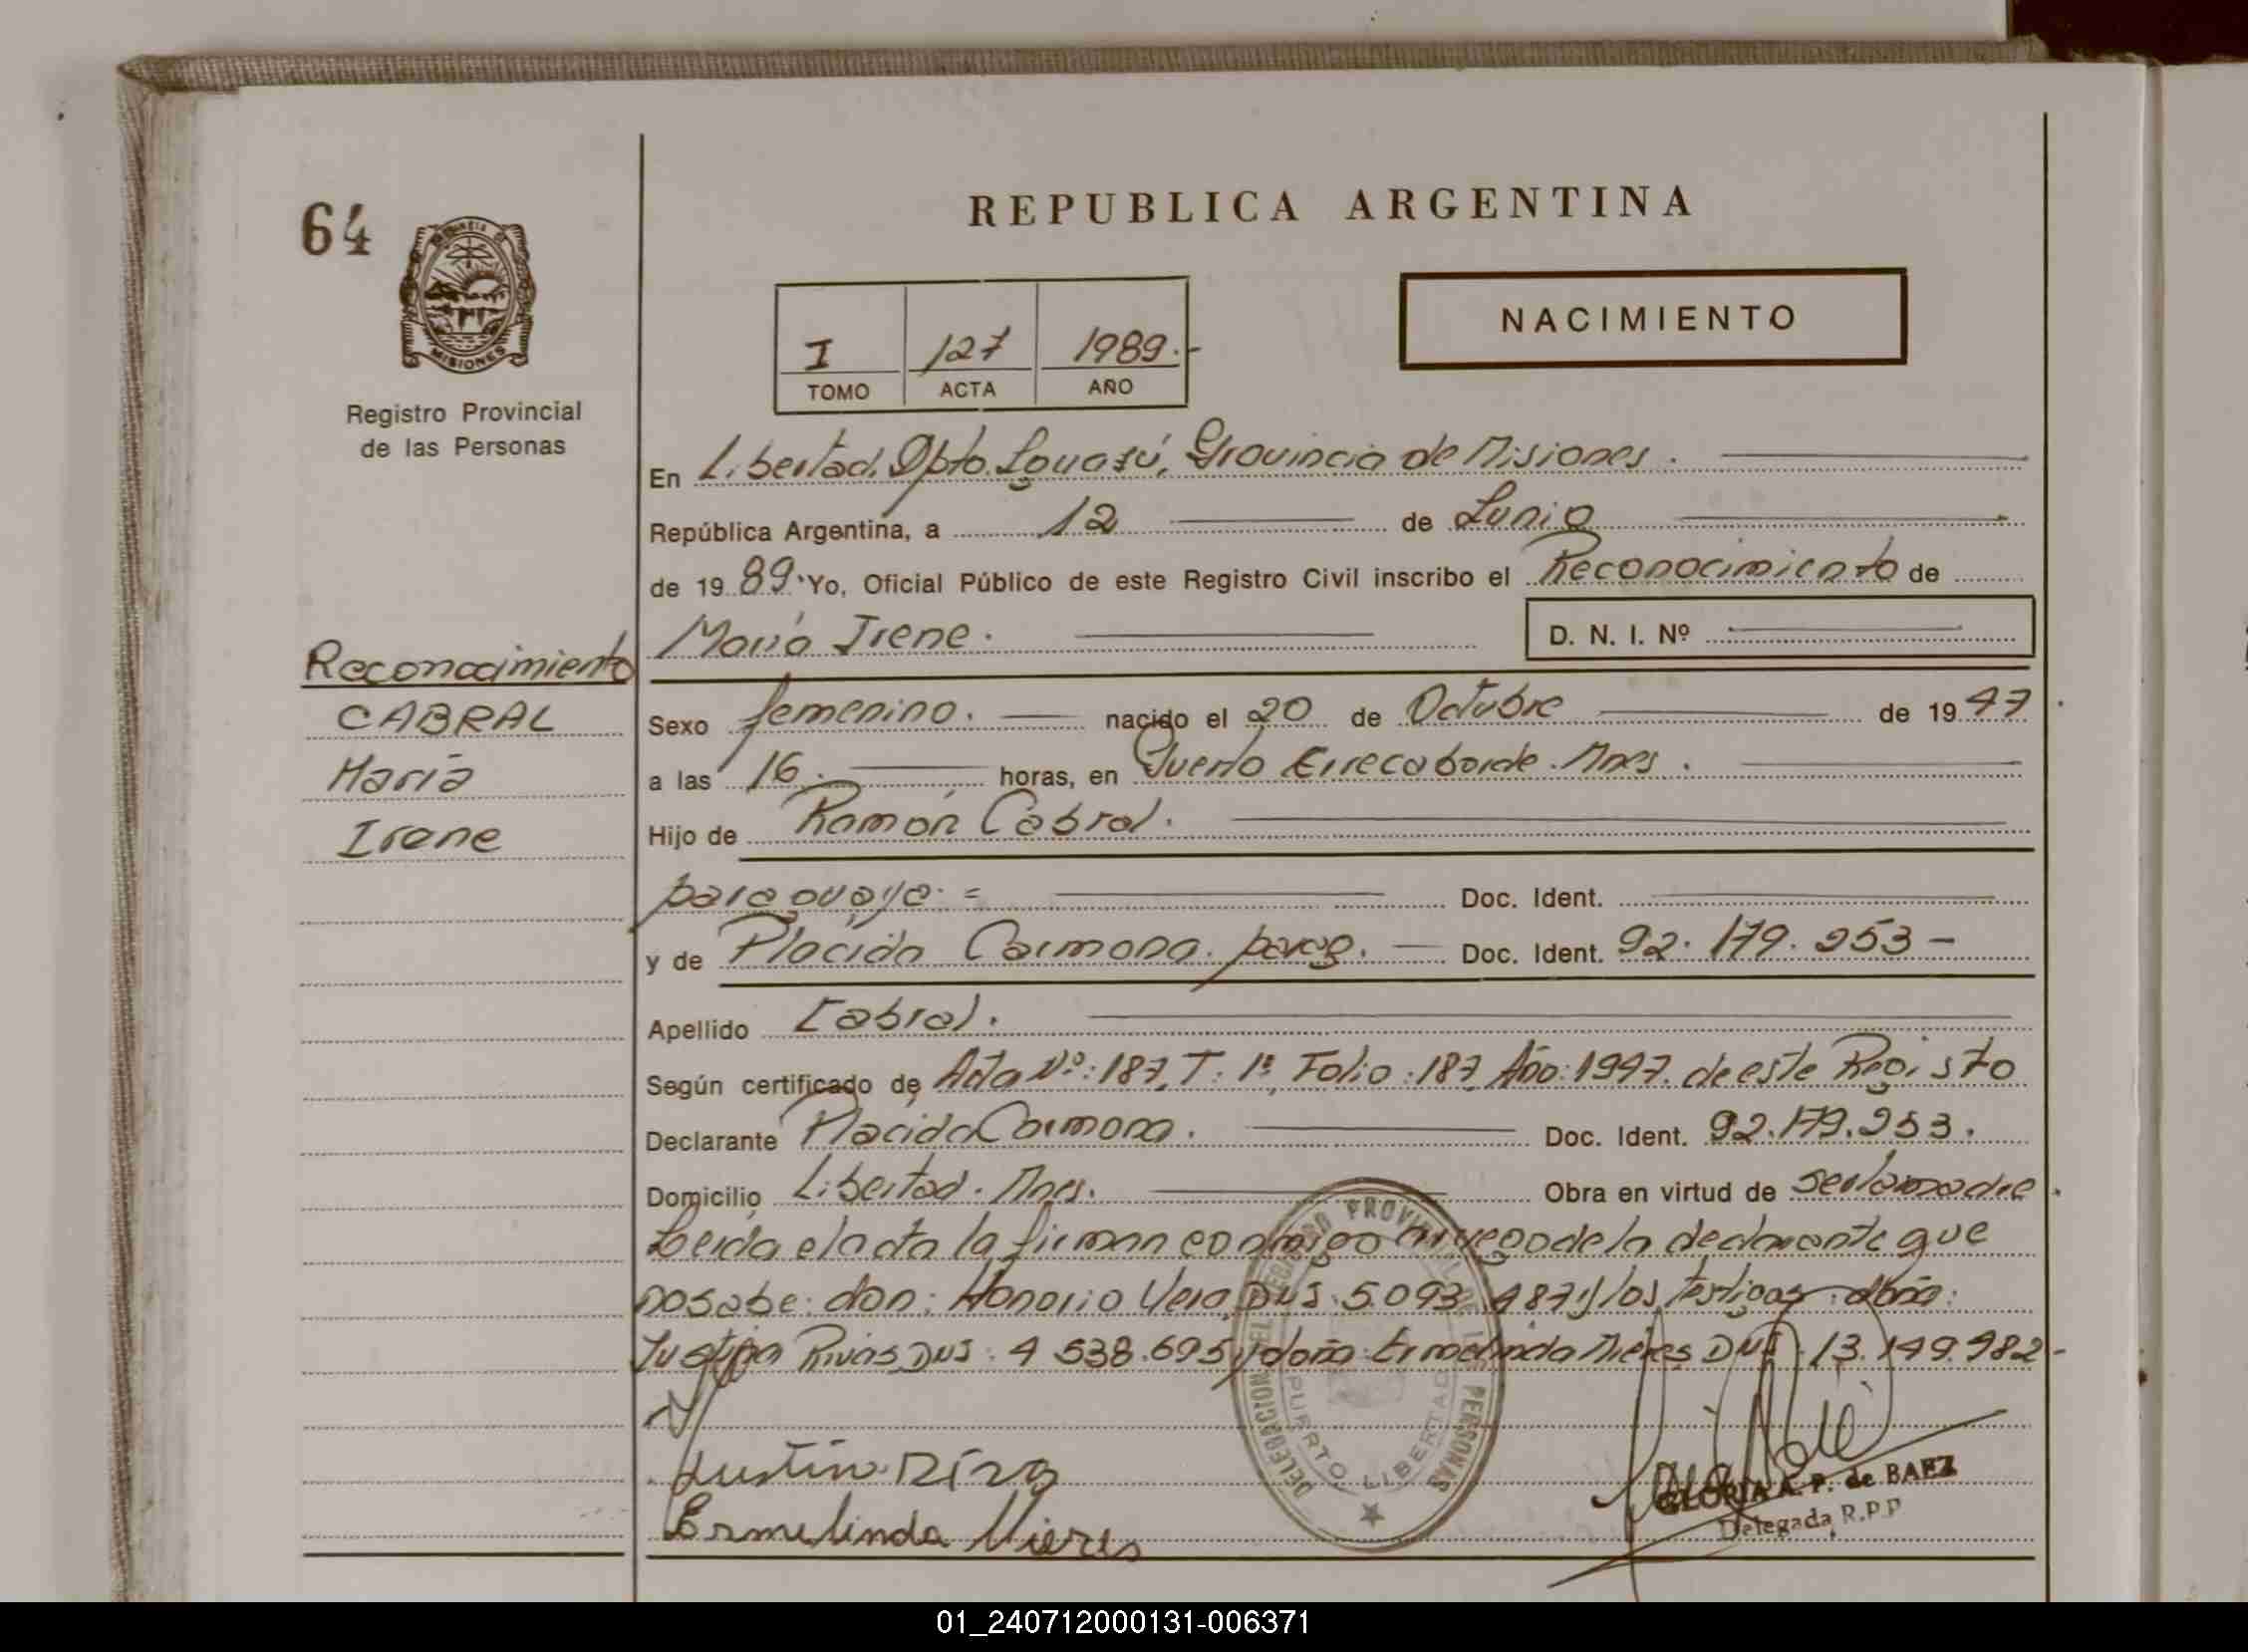 REPUBLICA ARGENTINA
64
NACIMIENTO
I 127 1989.-
TOMO ACTA AÑO
MISIONES
Registro Provincial
de las Personas
En Libertad. Dpto. Iguazú, Provincia de Misiones.
República Argentina, a 12 de Junio
de 19 89. Yo, Oficial Público de este Registro Civil inscribo el Reconocimiento de
María Irene. D. N. I. Nº
Reconocimiento
CABRAL
María
Irene
Sexo femenino. nacido el 20 de Octubre de 19 47
a las 16. horas, en Puerto Errecaborde. Mnes.
Hijo de Ramón Cabral.
paraguayo. = Doc. Ident.
y de Placida Carmona. parag. Doc. Ident. 92.179.253-
Apellido Cabral.
Según certificado de Acta Nº: 187, T: 1º, Folio: 187, Año: 1947. de este Registo
Declarante Placida Carmona. Doc. Ident. 92.179.253.
Domicilio Libertad. Mnes. Obra en virtud de ser la madre.
Leida el acta la firman conmigo a ruego de la declarante que
no sabe: don: Honorio Vera DNI: 5.093.487 y los testigos: doña:
Justina Rivas DNI: 4 538.695 y doña Ermelinda Mieres DNI: 13.149.982-
DELEGACION DEL REGISTRO PROVINCIAL DE LAS PERSONAS
PUERTO LIBERTAD
Ermelinda Mieres
GLORIA A. P. de BAEZ
Delegada R.P.P
01_240712000131-006371